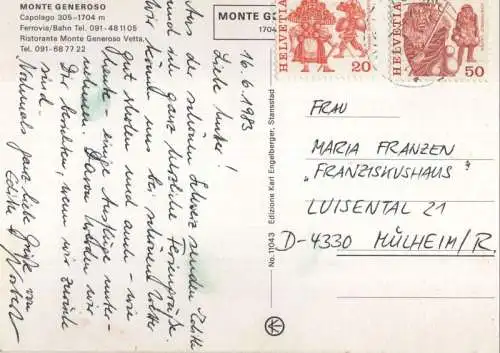 MONTE GENEROSO
Capolago 305-1704 m
Ferrovia/Bahn Tel. 091-48 11 05
Ristorante Monte Generoso Vetta.
Tel. 091-68 77 22
MONTE GENE
1704
HELVETIA
20
HELVETIA
50
16.6.1983
Liebe Mutter!
Aus der schönen Schweiz senden Edith
und ich ganz herzliche Feriengrüße.
Wir können uns bei schönem Wetter
gut erholen und auch - wie
heute - einige Ausflüge unter-
nehmen. Davon werden wir
Dir berichten, wenn wir zurück
sind.
Nochmals ganz liebe Grüße von
Edith &
No. 11043 Edizione Karl Engelberger, Stansstad
FRAU
MARIA FRANZEN
"FRANZISKUSHAUS"
LUISENTAL 21
D-4330 MÜLHEIM/R.